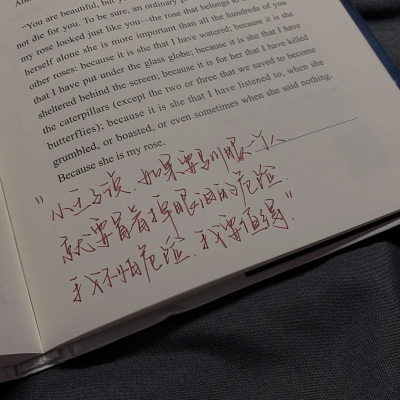 “You are beautiful, but
not die for you. To be sure, an ordinary
my rose looked just like you—the rose that belongs to
herself alone she is more important than all the hundreds of you
other roses: because it is she that I have watered; because it is she
that I have put under the glass globe; because it is she that I have
sheltered behind the screen; because it is for her that I have killed
the caterpillars (except the two or three that we saved to become
butterflies); because it is she that I have listened to, when she
grumbled, or boasted, or even sometimes when she said nothing.
Because she is my rose.
"小王子说.如果要驯服一个人
就要冒着掉眼泪的危险.
我不怕危险.我要值得."